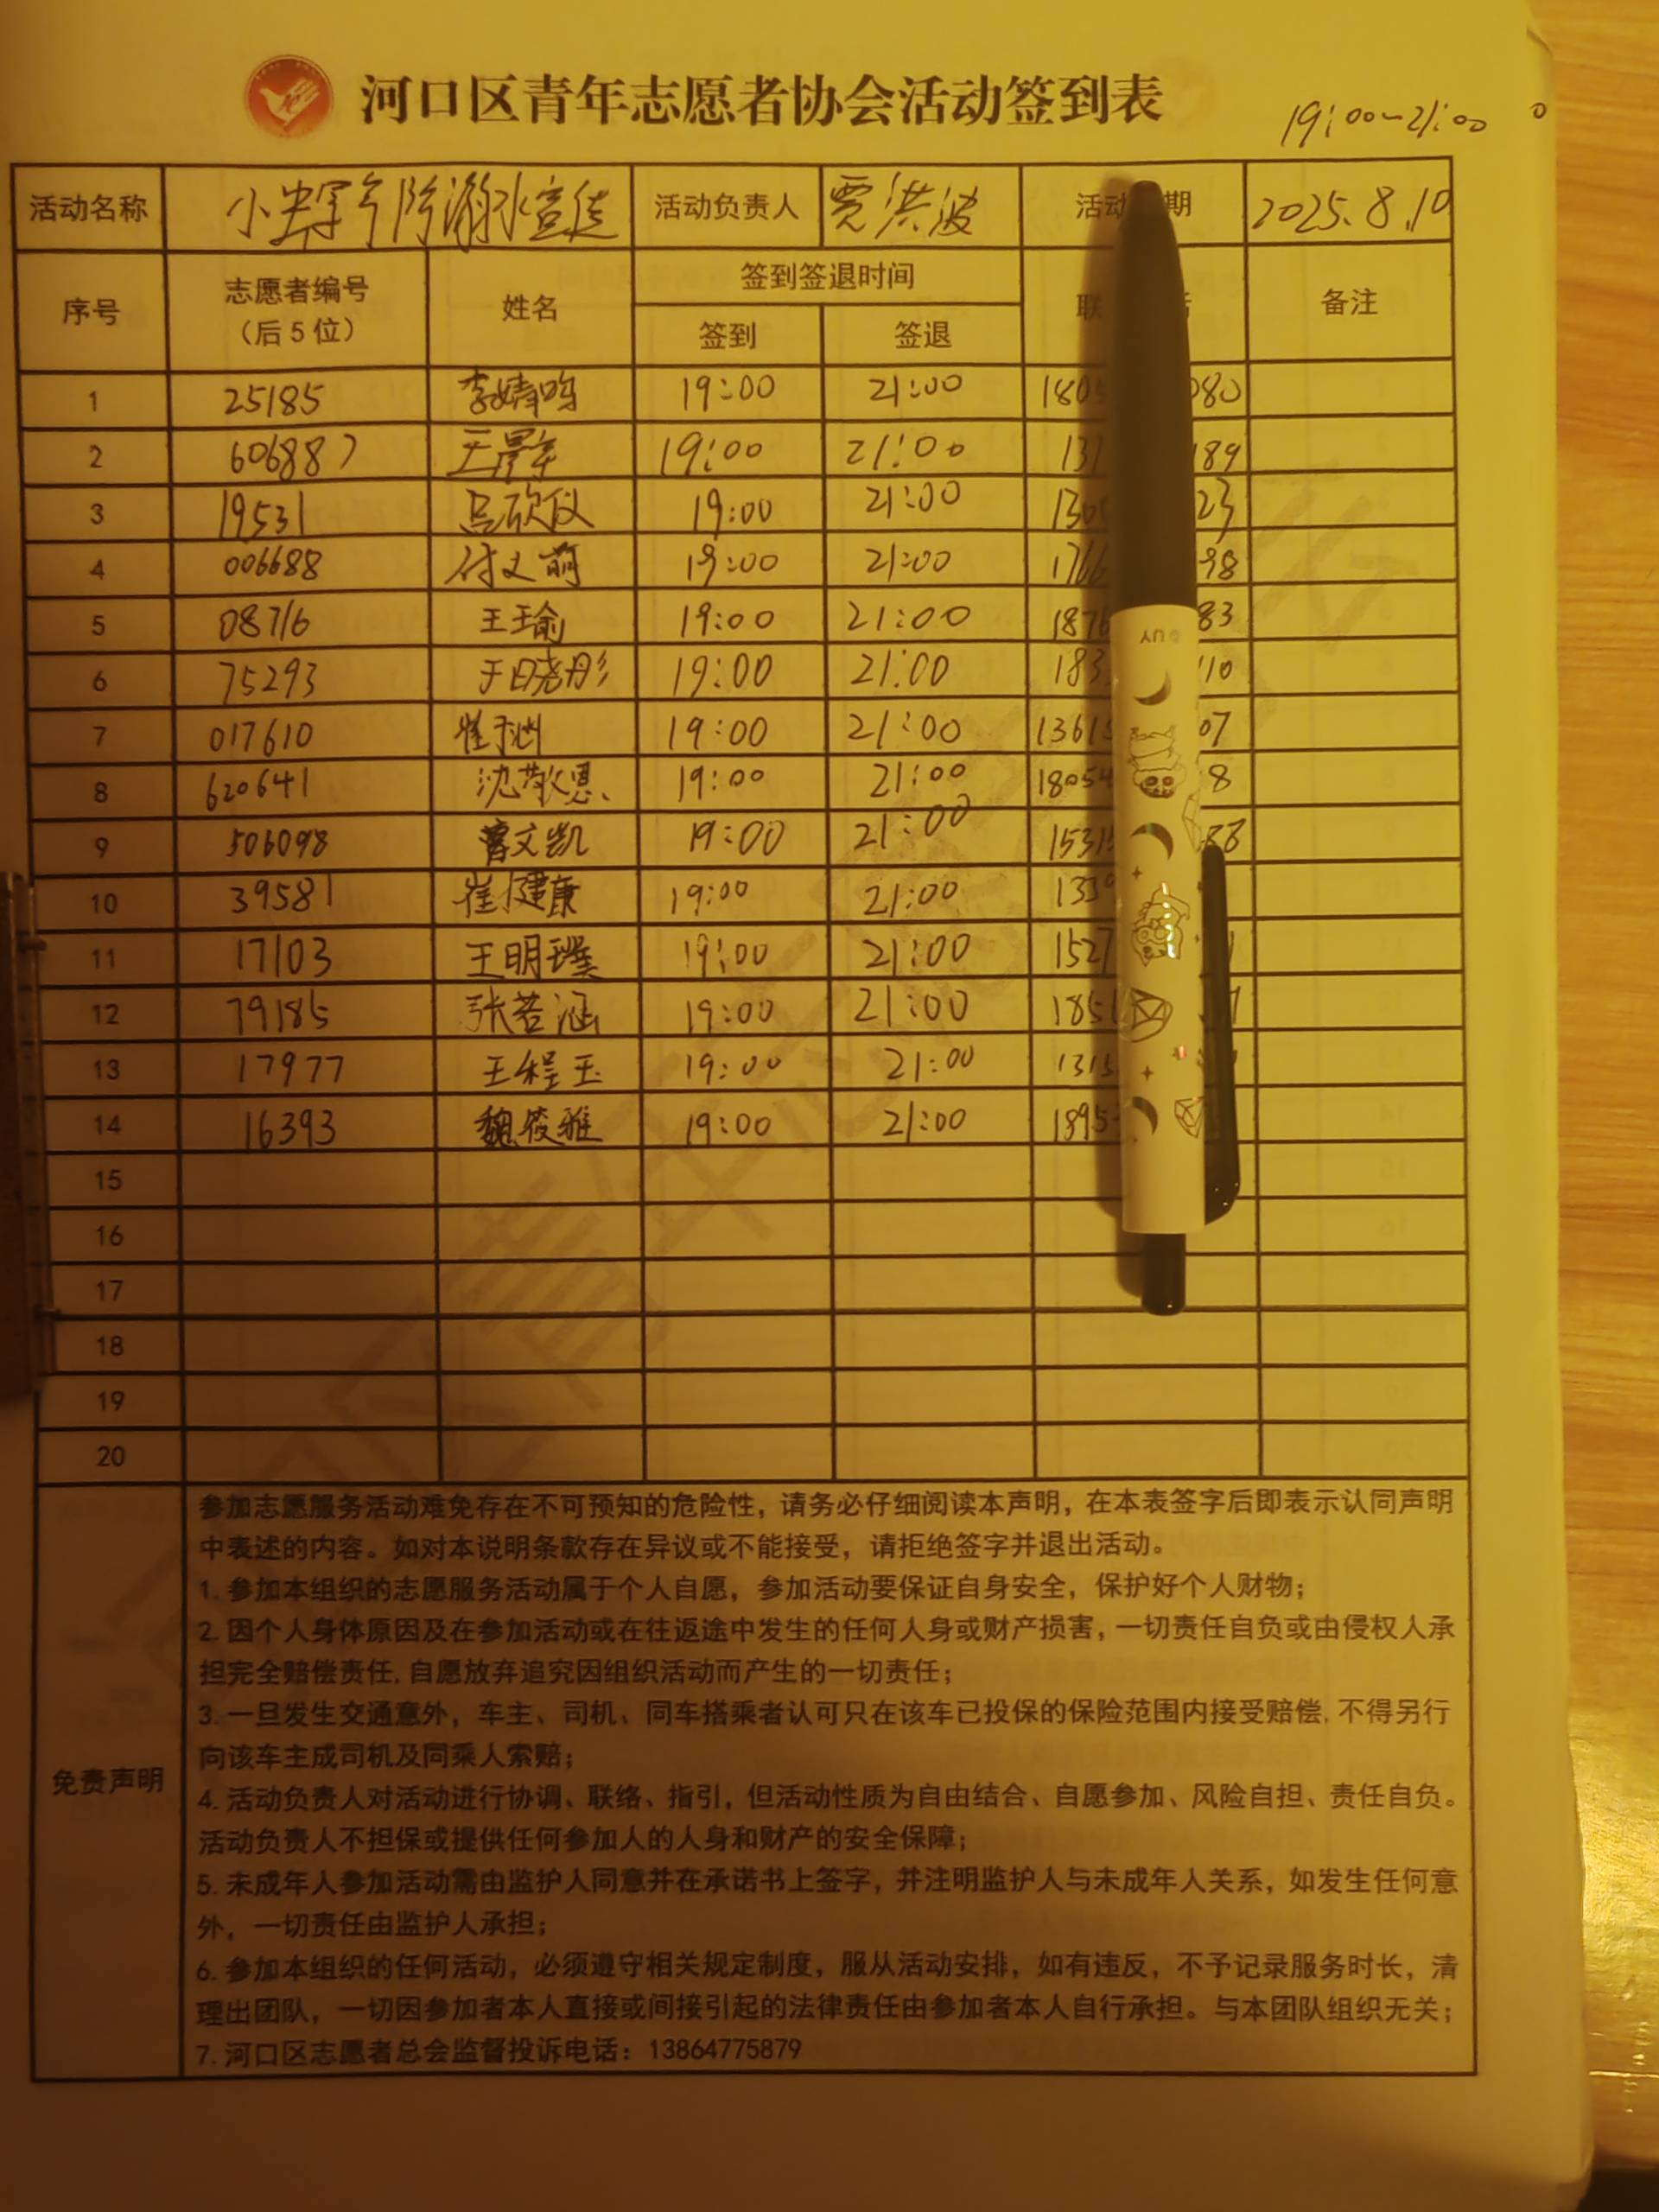 河口区青年志愿者协会活动签到表
19:00~21:00
活动名称 防溺水宣传 活动负责人 贾洪波 活动 期 2025.8.10
序号 志愿者编号（后5位） 姓名 签到签退时间 联 备注
签到 签退
1 25185 李婧鸣 19:00 21:00 1805 080
2 606887 19:00 21:00 131 189
3 19531 吕欣仪 19:00 21:00 130 23
4 006688 付文萌 19:00 21:00 176 98
5 08716 王瑜 19:00 21:00 1876 83
6 75293 于晓彤 19:00 21:00 183 10
7 017610 崔 19:00 21:00 1361 07
8 620641 沈敬恩 19:00 21:00 18054 8
9 506098 曹文凯 19:00 21:00 1531 88
10 39581 崔健康 19:00 21:00 133
11 17103 王明璞 19:00 21:00 1527
12 79185 张若涵 19:00 21:00 185
13 17977 王程玉 19:00 21:00 131
14 16393 魏筱雅 19:00 21:00 1895
15
16
17
18
19
20
免责声明
参加志愿服务活动难免存在不可预知的危险性，请务必仔细阅读本声明，在本表签字后即表示认同声明
中表述的内容。如对本说明条款存在异议或不能接受，请拒绝签字并退出活动。
1.参加本组织的志愿服务活动属于个人自愿，参加活动要保证自身安全，保护好个人财物；
2.因个人身体原因及在参加活动或在往返途中发生的任何人身或财产损害，一切责任自负或由侵权人承
担完全赔偿责任,自愿放弃追究因组织活动而产生的一切责任；
3.一旦发生交通意外，车主、司机、同车搭乘者认可只在该车已投保的保险范围内接受赔偿,不得另行
向该车主成司机及同乘人索赔；
4.活动负责人对活动进行协调、联络、指引，但活动性质为自由结合、自愿参加、风险自担、责任自负。
活动负责人不担保或提供任何参加人的人身和财产的安全保障；
5.未成年人参加活动需由监护人同意并在承诺书上签字，并注明监护人与未成年人关系，如发生任何意
外，一切责任由监护人承担；
6.参加本组织的任何活动，必须遵守相关规定制度，服从活动安排，如有违反，不予记录服务时长，清
理出团队，一切因参加者本人直接或间接引起的法律责任由参加者本人自行承担。与本团队组织无关；
7.河口区志愿者总会监督投诉电话：13864775879